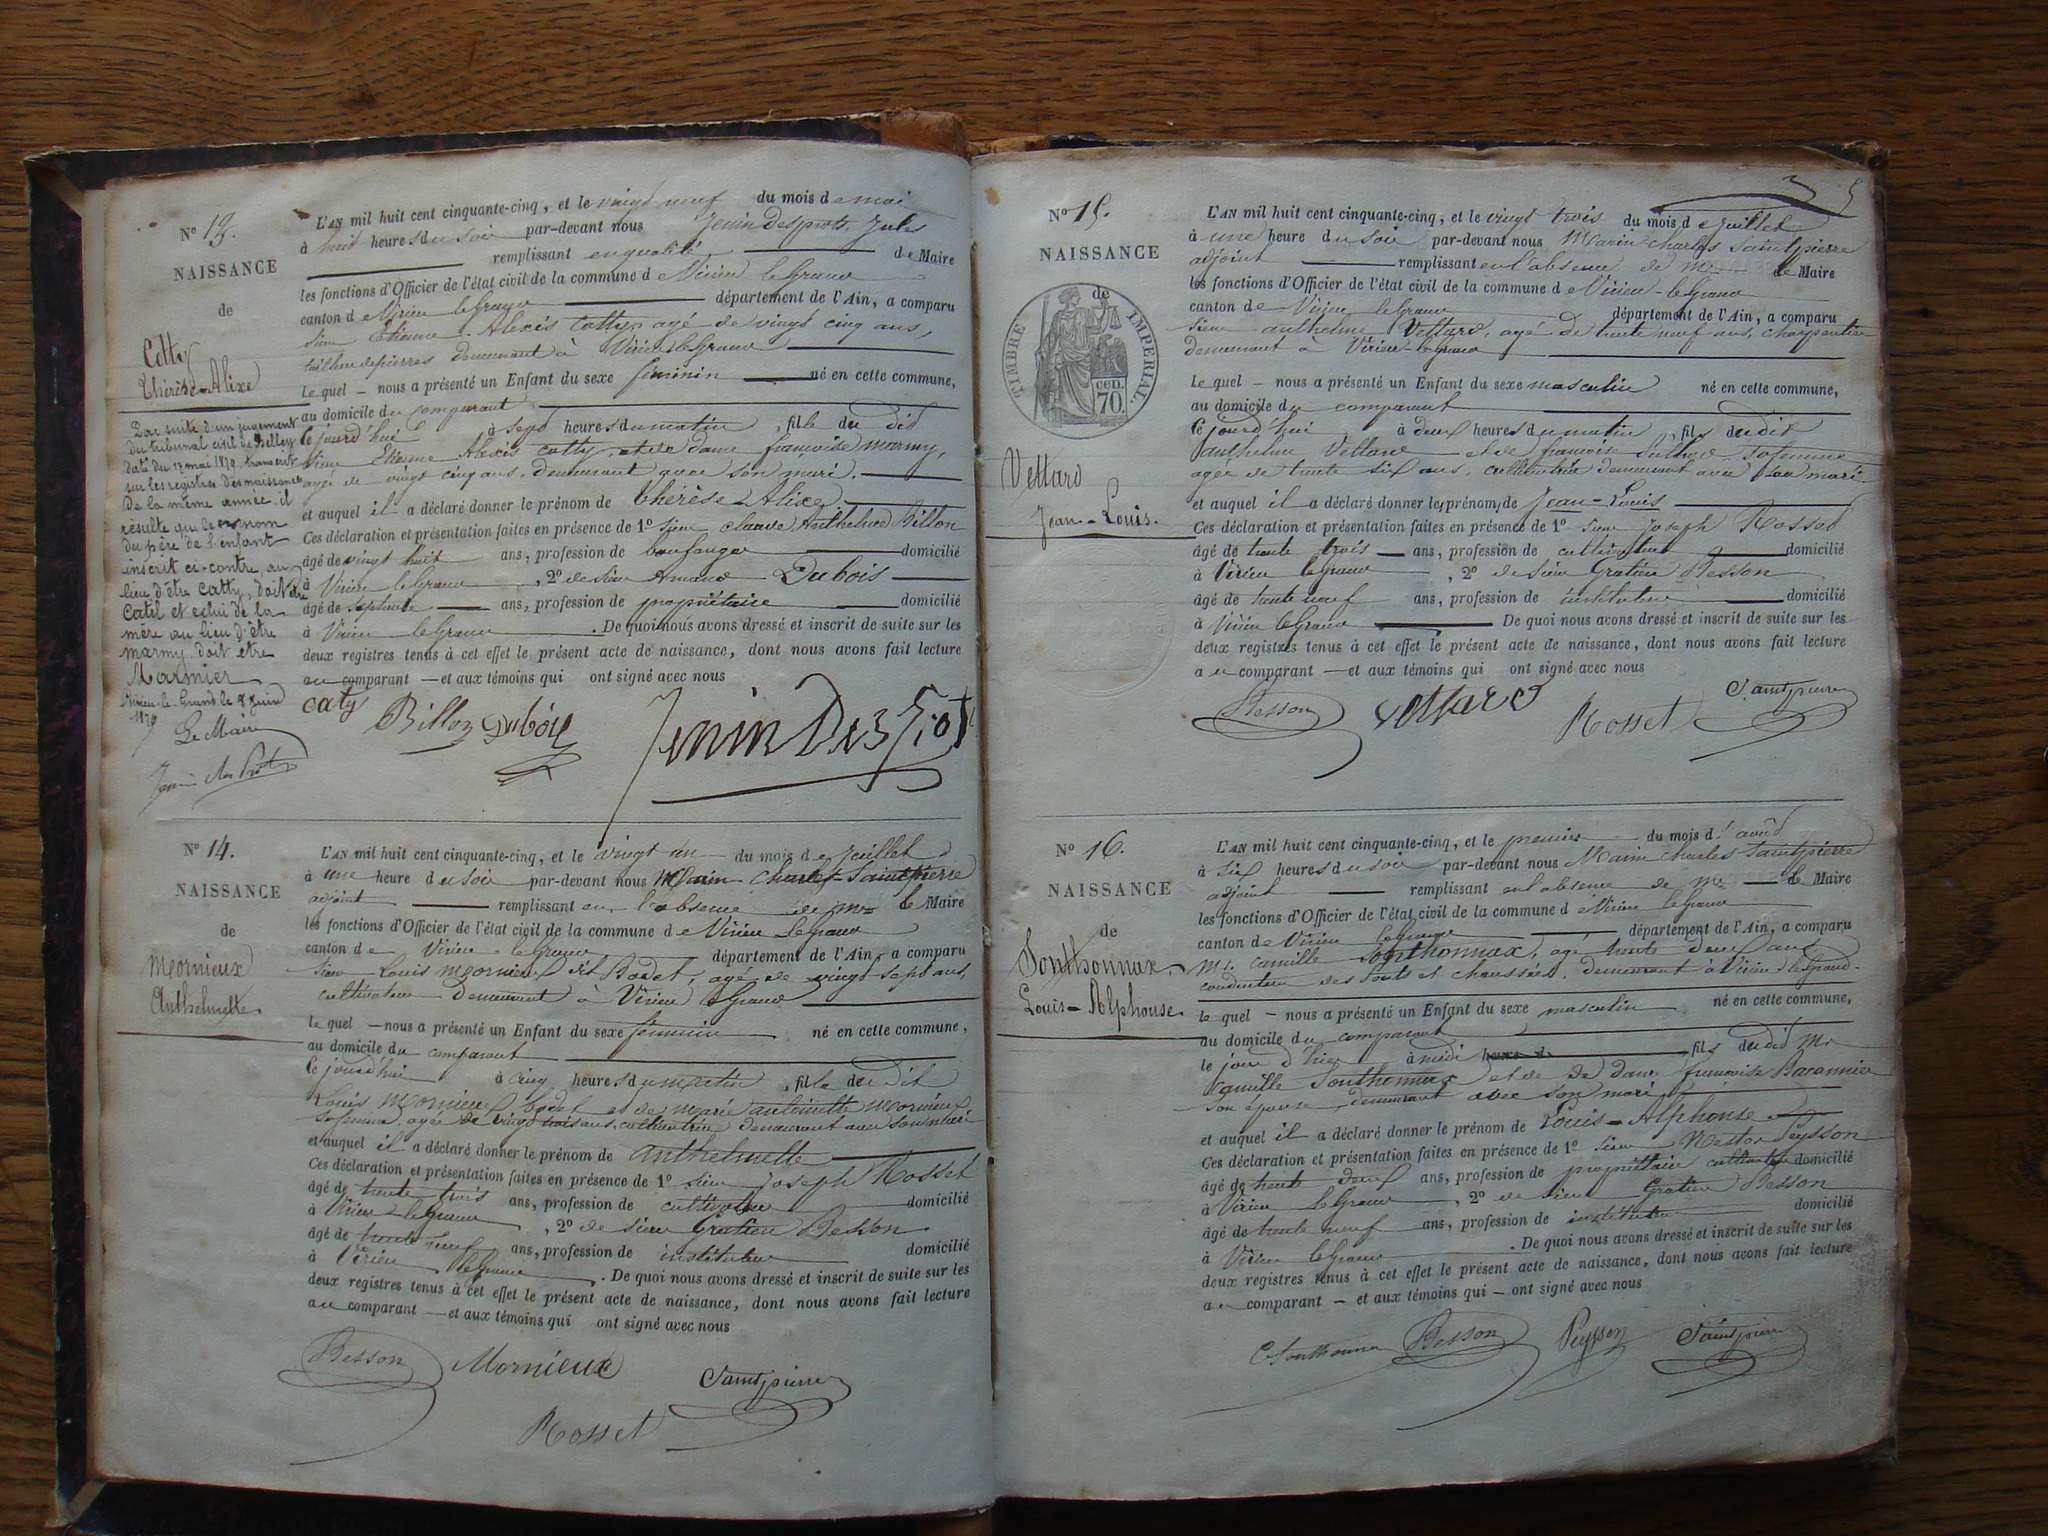 N° 13.
NAISSANCE
de
Cotty
Thérèse-Alixe
Par suite d'un jugement
du tribunal civil de Belley
daté du 17 mai 1879, transcrit
sur les registres des naissances
De la même année il
résulte que le nom
du père de l'enfant
inscrit ci-contre, au
lieu d'être Catty, doit être
Catel et celui de la
mère au lieu d'être
Marmy doit être
Marmier
Virieu-le-Grand le Juin
1879
Le Maire
L'AN mil huit cent cinquante-cinq, et le vingt neuf du mois de mai
à huit heures du soir par-devant nous Jenin Desprots, Jules
remplissant en qualité de Maire
les fonctions d'Officier de l'état civil de la commune de Virieu le Grand
canton de Virieu le Grand département de l'Ain, a comparu
Sieur Etienne Alexis Catty, agé de vingt cinq ans,
tailleur de pierres demeurant à Virieu le Grand
le quel nous a présenté un Enfant du sexe féminin né en cette commune,
au domicile du comparant
ce jourd'hui à sept heures du matin, fille du dit
Sieur Etienne Alexis Catty et de dame françoise Marmy,
agée de vingt cinq ans, demeurant avec son mari.
et auquel il a déclaré donner le prénom de Thérèse Alixe
Ces déclaration et présentation faites en présence de 1° Sieur Claude Anthelme Billon
âgé de vingt huit ans, profession de boulanger domicilié
à Virieu le Grand, 2° de Sieur Armand Dubois
âgé de septante ans, profession de propriétaire domicilié
à Virieu le Grand. De quoi nous avons dressé et inscrit de suite sur les
deux registres tenus à cet effet le présent acte de naissance, dont nous avons fait lecture
au comparant — et aux témoins qui ont signé avec nous
Caty Billon Dubois Jenin Desprots
N° 14.
NAISSANCE
de
Mornieux
Anthelmette
L'AN mil huit cent cinquante-cinq, et le vingt un du mois de Juillet
à une heure du soir par-devant nous Marin Charles Saintpierre
adjoint remplissant en l'absence de Mr le Maire
les fonctions d'Officier de l'état civil de la commune de Virieu le grand
canton de Virieu le Grand département de l'Ain, a comparu
Sieur Louis Mornieux dit Bodet, agé de vingt sept ans,
cultivateur demeurant à Virieu le Grand
le quel — nous a présenté un Enfant du sexe féminin né en cette commune,
au domicile du comparant
ce jourd'hui à cinq heures du matin, fille du dit
Louis Mornieux bodet et de Marie antoinette Mornieux
sa femme, agée de vingt trois ans, cultivatrice demeurant avec son mari
et auquel il a déclaré donner le prénom de Anthelmette
Ces déclaration et présentation faites en présence de 1° Sieur Joseph Rosset
âgé de trente trois ans, profession de cultivateur domicilié
à Virieu le grand, 2° de Sieur Gratien Besson
âgé de trente neuf ans, profession de instituteur domicilié
à Virieu le Grand. De quoi nous avons dressé et inscrit de suite sur les
deux registres tenus à cet effet le présent acte de naissance, dont nous avons fait lecture
au comparant — et aux témoins qui ont signé avec nous
Besson Mornieux Saintpierre
Rosset
5
N° 15.
NAISSANCE
de
TIMBRE IMPÉRIAL.
70 cen.
Vettard
Jean-Louis.
L'AN mil huit cent cinquante-cinq, et le vingt trois du mois de Juillet
à une heure du soir par-devant nous Marin Charles Saintpierre
adjoint remplissant en l'absence de Mr le Maire
les fonctions d'Officier de l'état civil de la commune de Virieu-le-Grand
canton de Virieu le Grand département de l'Ain, a comparu
Sieur anthelme Vettard, agé de trente neuf ans, charpentier
demeurant à Virieu-le-Grand
le quel — nous a présenté un Enfant du sexe masculin né en cette commune,
au domicile du comparant
ce jourd'hui à deux heures du matin, fils du dit
anthelme Vettard et de françoise sa femme
agée de trente six ans, cultivatrice demeurant avec son mari.
et auquel il a déclaré donner les prénoms de Jean-Louis
Ces déclaration et présentation faites en présence de 1° Sieur Joseph Rosset
âgé de trente trois ans, profession de cultivateur domicilié
à Virieu le Grand, 2° de Sieur Gratien Besson
âgé de trente neuf ans, profession de instituteur domicilié
à Virieu le Grand De quoi nous avons dressé et inscrit de suite sur les
deux registres tenus à cet effet le présent acte de naissance, dont nous avons fait lecture
au comparant — et aux témoins qui ont signé avec nous
Besson Vettard Rosset Saintpierre
N° 16.
NAISSANCE
de
Sonthonnax
Louis-Alphonse
L'AN mil huit cent cinquante-cinq, et le premier du mois d'août
à six heures du soir par-devant nous Marin Charles Saintpierre
adjoint remplissant en l'absence de Mr le Maire
les fonctions d'Officier de l'état civil de la commune de Virieu le Grand
canton de Virieu le Grand département de l'Ain, a comparu
Mr. Camille Sonthonnax, agé trente deux ans
conducteur des Ponts et chaussées, demeurant à Virieu le Grand
le quel — nous a présenté un Enfant du sexe masculin né en cette commune,
au domicile du comparant
le jour d'hier à midi heures d, fils du dit Mr
Camille Sonthonnax et de Dame françoise Baconnier
son épouse, demeurant avec son mari
et auquel il a déclaré donner le prénom de Louis-Alphonse
Ces déclaration et présentation faites en présence de 1° Sieur Nestor Peysson
âgé de trente deux ans, profession de propriétaire cultivateur domicilié
à Virieu le Grand, 2° de Sieur Gratien Besson
âgé de trente neuf ans, profession de instituteur domicilié
à Virieu le Grand. De quoi nous avons dressé et inscrit de suite sur les
deux registres tenus à cet effet le présent acte de naissance, dont nous avons fait lecture
au comparant — et aux témoins qui — ont signé avec nous
CSonthonnax Besson Peysson Saintpierre